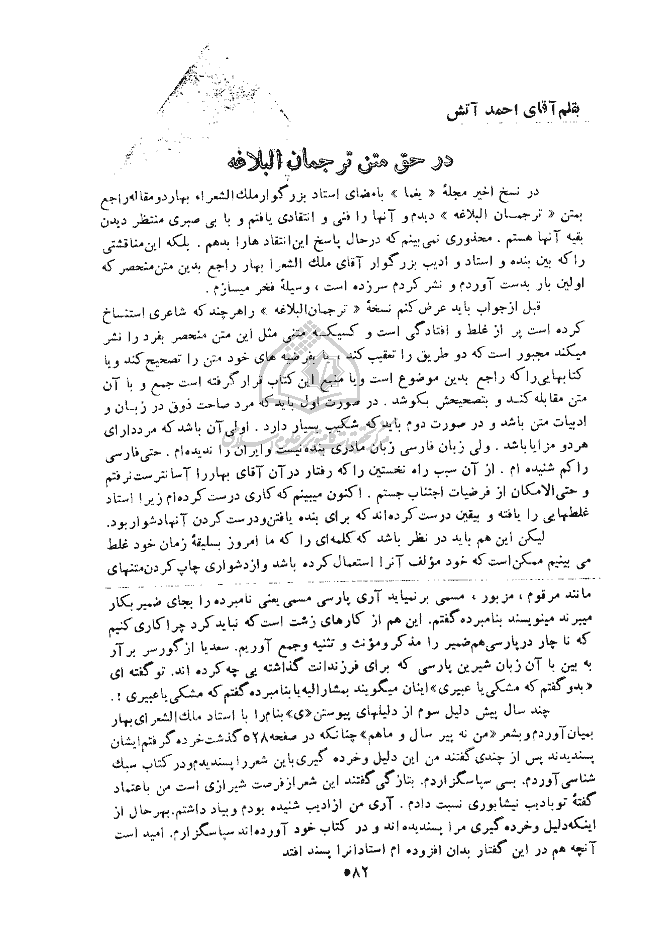 بقلم آقای احمد آتش
در حق متن ترجمان البلاغه
در نسخ اخیر مجلهٔ « یغما » بامضای استاد بزرگوار ملك الشعراء بهار دو مقاله راجع
بمتن « ترجمـان البلاغه » دیدم و آنها را فنی و انتقادی یافتم و با بی صبری منتظر دیدن
بقیه آنها هستم . محذوری نمی‌بینم که درحال پاسخ این انتقاد هارا بدهم . بلکه این مناقشتی
را که بین بنده و استاد و ادیب بزرگوار آقای ملك الشعرا بهار راجع بدین متن منحصر که
اولین بار بدست آوردم و نشر کردم سرزده است ، وسیلهٔ فخر میسازم .
قبل از جواب باید عرض کنم نسخهٔ « ترجمان‌البلاغه » را هرچند که شاعری استنساخ
کرده است پر از غلط و افتادگی است و کسیکه متنی مثل این متن منحصر بفرد را نشر
میکند مجبور است که دو طریق را تعقیب کند ، یا بفرضیه های خود متن را تصحیح کند و یا
کتابهایی را که راجع بدین موضوع است و یا منبع این کتاب قرار گرفته است جمع و با آن
متن مقابله کند و بتصحیحش بکوشد . در صورت اول باید که مرد صاحت ذوق در زبان و
ادبیات متن باشد و در صورت دوم باید که شکیب بسیار دارد . اولی آن باشد که مرد دارای
هردو مزایا باشد . ولی زبان فارسی زبان مادری بنده نیست و ایران را ندیده‌ام . حتی فارسی
را کم شنیده ام . از آن سبب راه نخستین را که رفتار در آن آقای بهار را آسانترست نرفتم
و حتی‌الامکان از فرضیات اجتناب جستم . اکنون میبینم که کاری درست کرده‌ام زیرا استاد
غلطهایی را یافته و بیقین درست کرده‌اند که برای بنده یافتن و درست کردن آنها دشوار بود.
لیکن این هم باید در نظر باشد که کلمه‌ای را که ما امروز بسلیقهٔ زمان خود غلط
می بینیم ممکن است که خود مؤلف آنرا استعمال کرده باشد و از دشواری چاپ کردن متنهای
مانند مرقوم ، مزبور ، مسمی برنمیاید آری پارسی مسمی یعنی نامبرده را بجای ضمیر بکار
میبرند مینویسند بنامبرده گفتم. این هم از کارهای زشت است که نباید کرد چرا کاری کنیم
که نا چار در پارسی هم ضمیر را مذکر و مؤنث و تثنیه و جمع آوریم. سعدیا از گور سر بر آر
به بین با آن زبان شیرین پارسی که برای فرزندانت گذاشته یی چه کرده اند. تو گفته ای
«بدو گفتم که مشکی یا عبیری» اینان میگویند بمشارالیه یا بنامبرده گفتم که مشکی یا عبیری !.
چند سال پیش دلیل سوم از دلیلهای پیوستن «ی» بنام را با استاد ملك الشعرای بهار
بمیان آوردم و بشعر «من نه پیر سال و ماهم» چنانکه در صفحه ۵۲۸ گذشت خرده گرفتم ایشان
پسندیدند پس از چندی گفتند من این دلیل و خرده گیری باین شعر را پسندیدم و در کتاب سبك
شناسی آوردم. بسی سپاسگزاردم. بتازگی گفتند این شعر از فرصت شیرازی است من باعتماد
گفتهٔ تو بادیب نیشابوری نسبت دادم . آری من از ادیب شنیده بودم و بیاد داشتم. بهر حال از
اینکه دلیل و خرده گیری مرا پسندیده اند و در کتاب خود آورده‌اند سپاسگزارم. امید است
آنچه هم در این گفتار بدان افزوده ام استاد انرا پسند افتد
۵۸۲